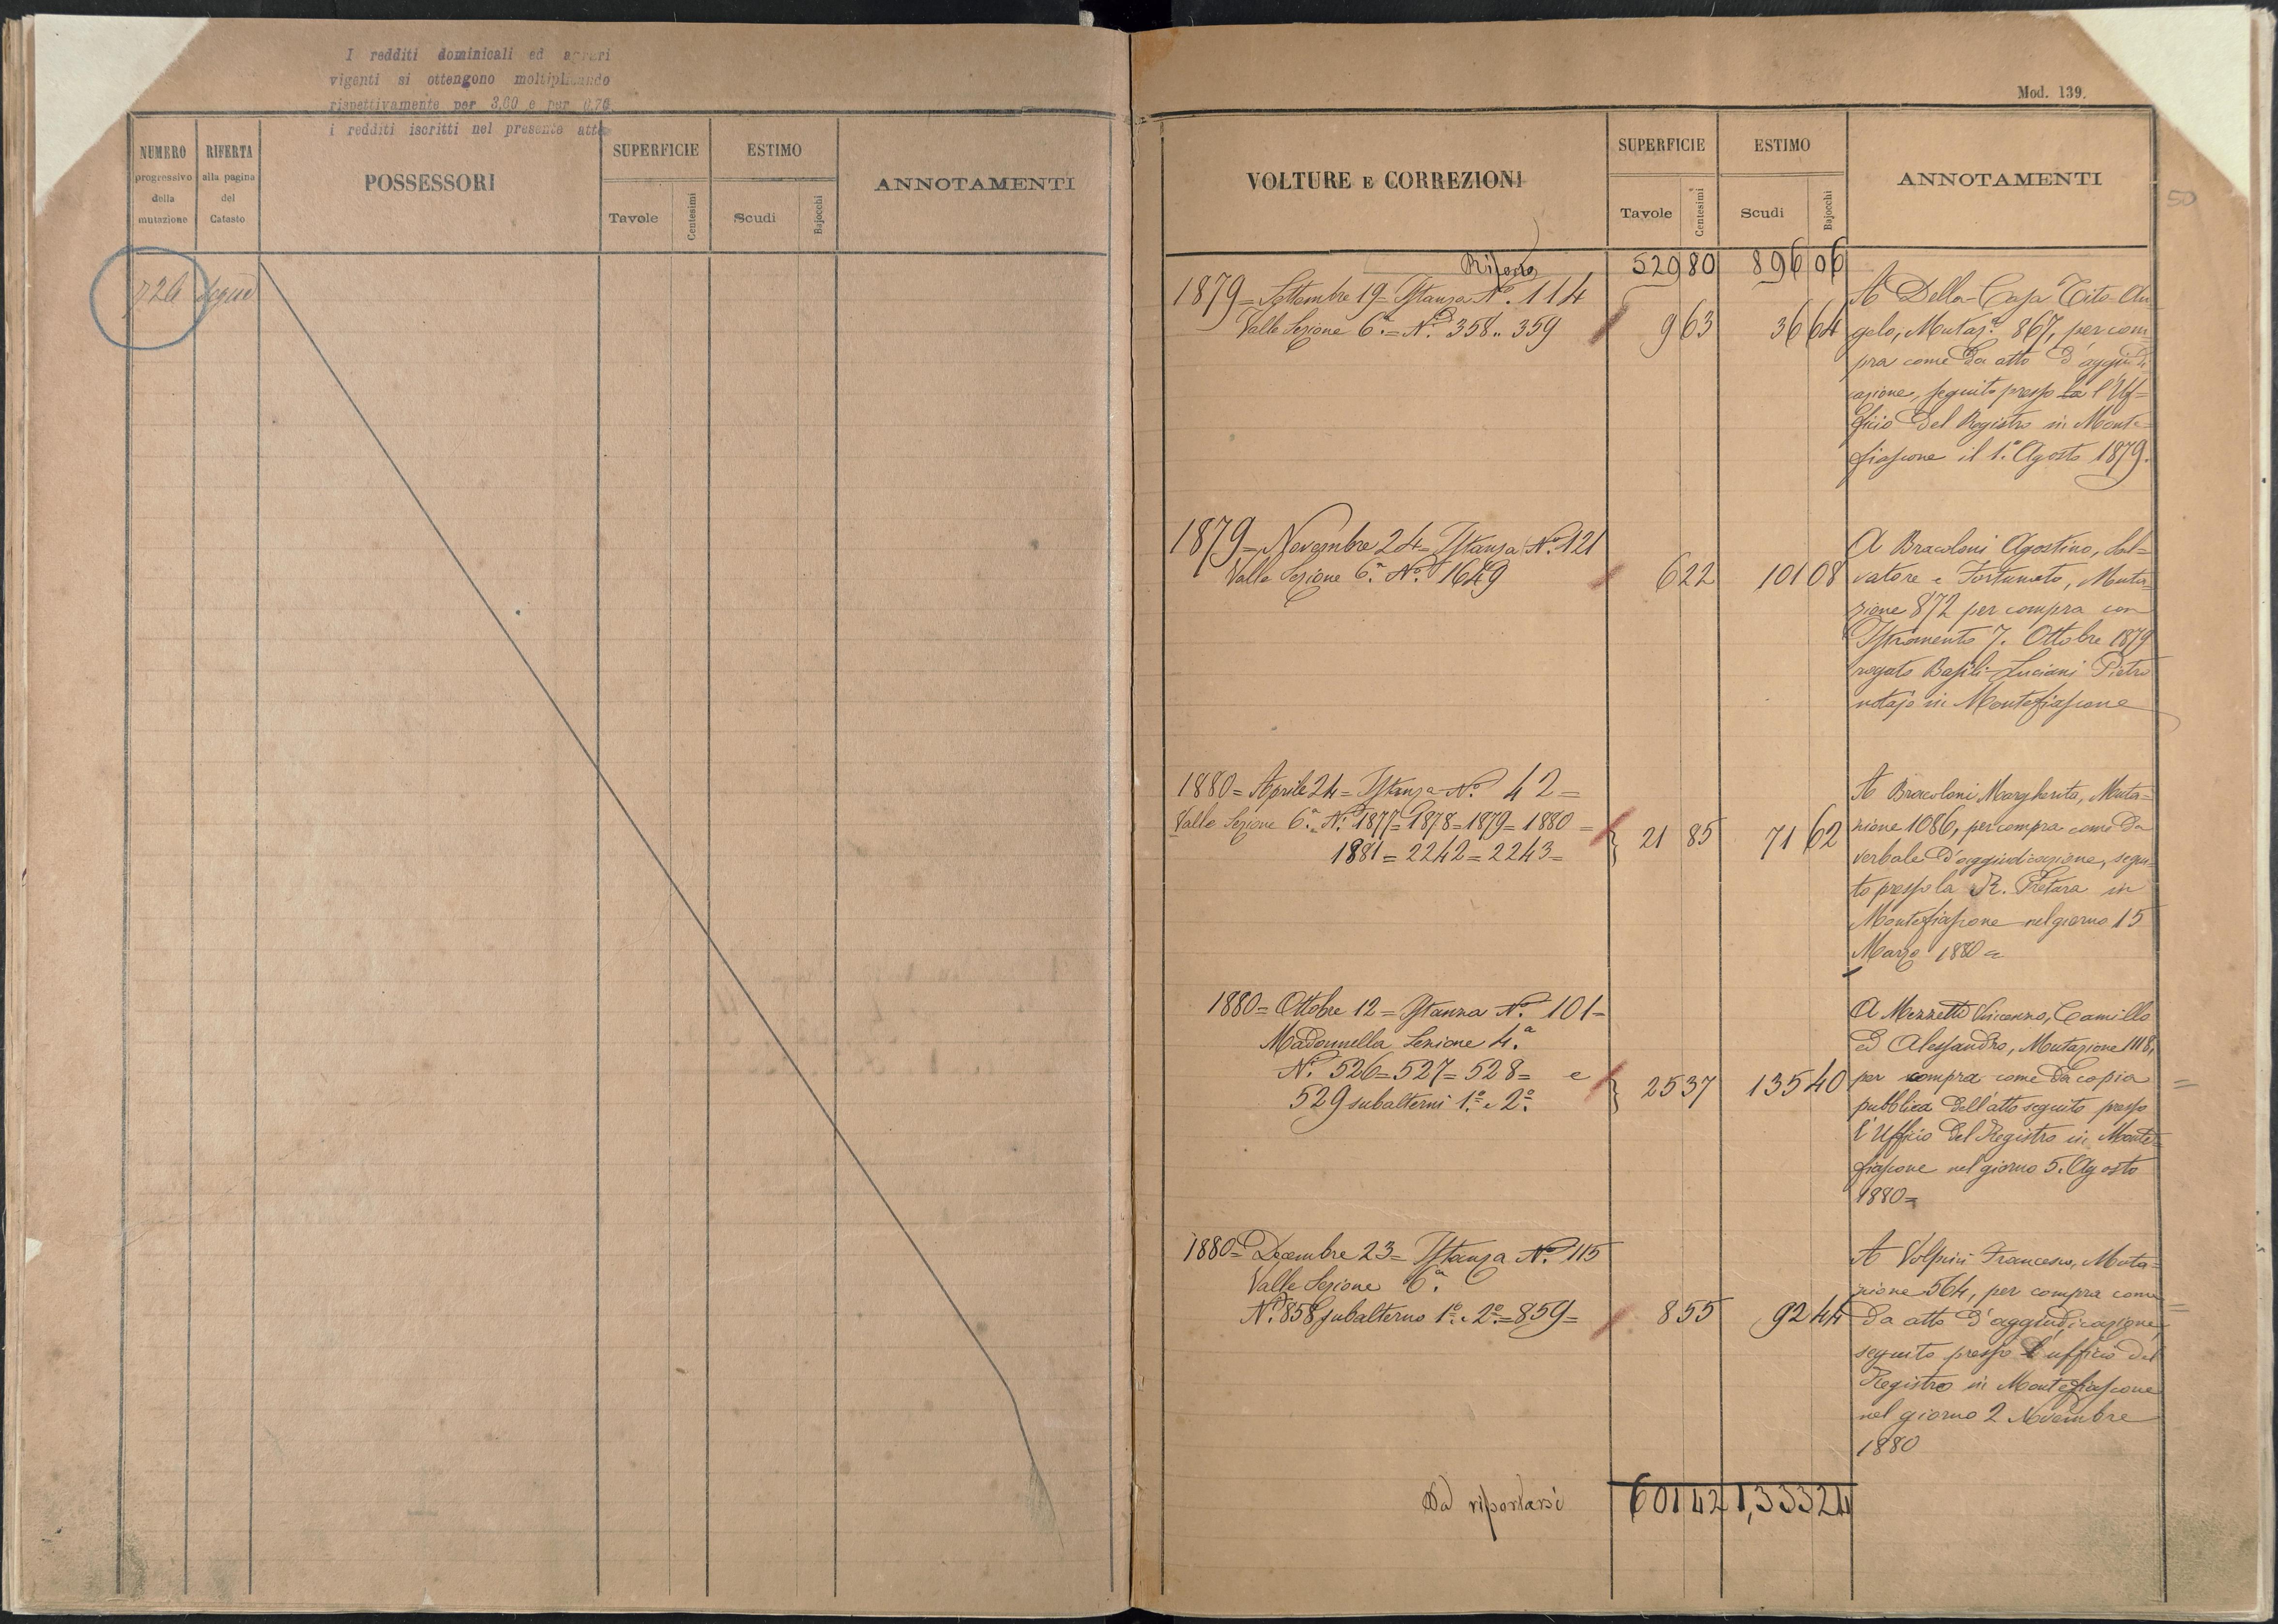 I redditi dominicali ed agrari
vigenti si ottengono moltiplicando
rispettivamente per 3,60 e per 0,70
i redditi iscritti nel presente atto
NUMERO
progressivo
della
mutazione
RIFERTA
alla pagina
del
Catasto
POSSESSORI
SUPERFICIE
Tavole
Centesimi
ESTIMO
Scudi
Bajocchi
ANNOTAMENTI
724 segue
Mod. 139.
50
VOLTURE E CORREZIONI
SUPERFICIE
Tavole
Centesimi
ESTIMO
Scudi
Bajocchi
ANNOTAMENTI
Riporto 529 80 896 06
1879 = Settembre 19 = Istanza N.° 114
Valle Sezione 6.ª = N.i 358 .. 359 9 63 36 64
A Della-Casa Tito-An
gelo, Mutaz.e 867, per com
pra come da atto d'aggiudi
cazione, seguito presso la l'Uf=
ficio del Registro in Monte=
fiascone il 1.° Agosto 1879.
1879 = Novembre 24 = Istanza N.° 121
Valle Sezione 6.ª N.° 1649 6 22 101 08
A Bracoloni Agostino, Sal=
vatore e Fortunato, Muta=
zione 872 per compra con
Istromento 7. Ottobre 1879
rogato Basili-Luciani Pietro
notajo in Montefiascone
1880 = Aprile 24 = Istanza N.° 42 =
Valle Sezione 6.ª N.i 1877 = 1878 = 1879 = 1880 =
1881 = 2242 = 2243 = 21 85 71 62
A Bracoloni Margherita, Muta=
zione 1086, per compra come da
verbale d'aggiudicazione, segui=
to presso la R. Pretura in
Montefiascone nel giorno 15
Marzo 1880 =
1880 = Ottobre 12 = Istanza N.° 101 =
Madonnella Sezione 4.ª
N.i 526 = 527 = 528 = e
529 subalterni 1.° e 2.° 25 37 135 40
A Mezzetti Vincenzo, Camillo
ed Alessandro, Mutazione 1118,
per compra come da copia
pubblica dell'atto seguito presso
l'Ufficio del Registro in Monte=
fiascone nel giorno 5. Agosto
1880 =
1880 = Decembre 23 = Istanza N.° 115
Valle Sezione 6.ª
N.i 858 subalterno 1.° e 2.° = 859 = 8 55 92 44
A Volpini Francesco, Muta=
zione 564, per compra come
da atto d'aggiudicazione,
seguito presso l'ufficio del
Registro in Montefiascone
nel giorno 2 Novembre
1880
Da riportarsi 601 42 1,333 24